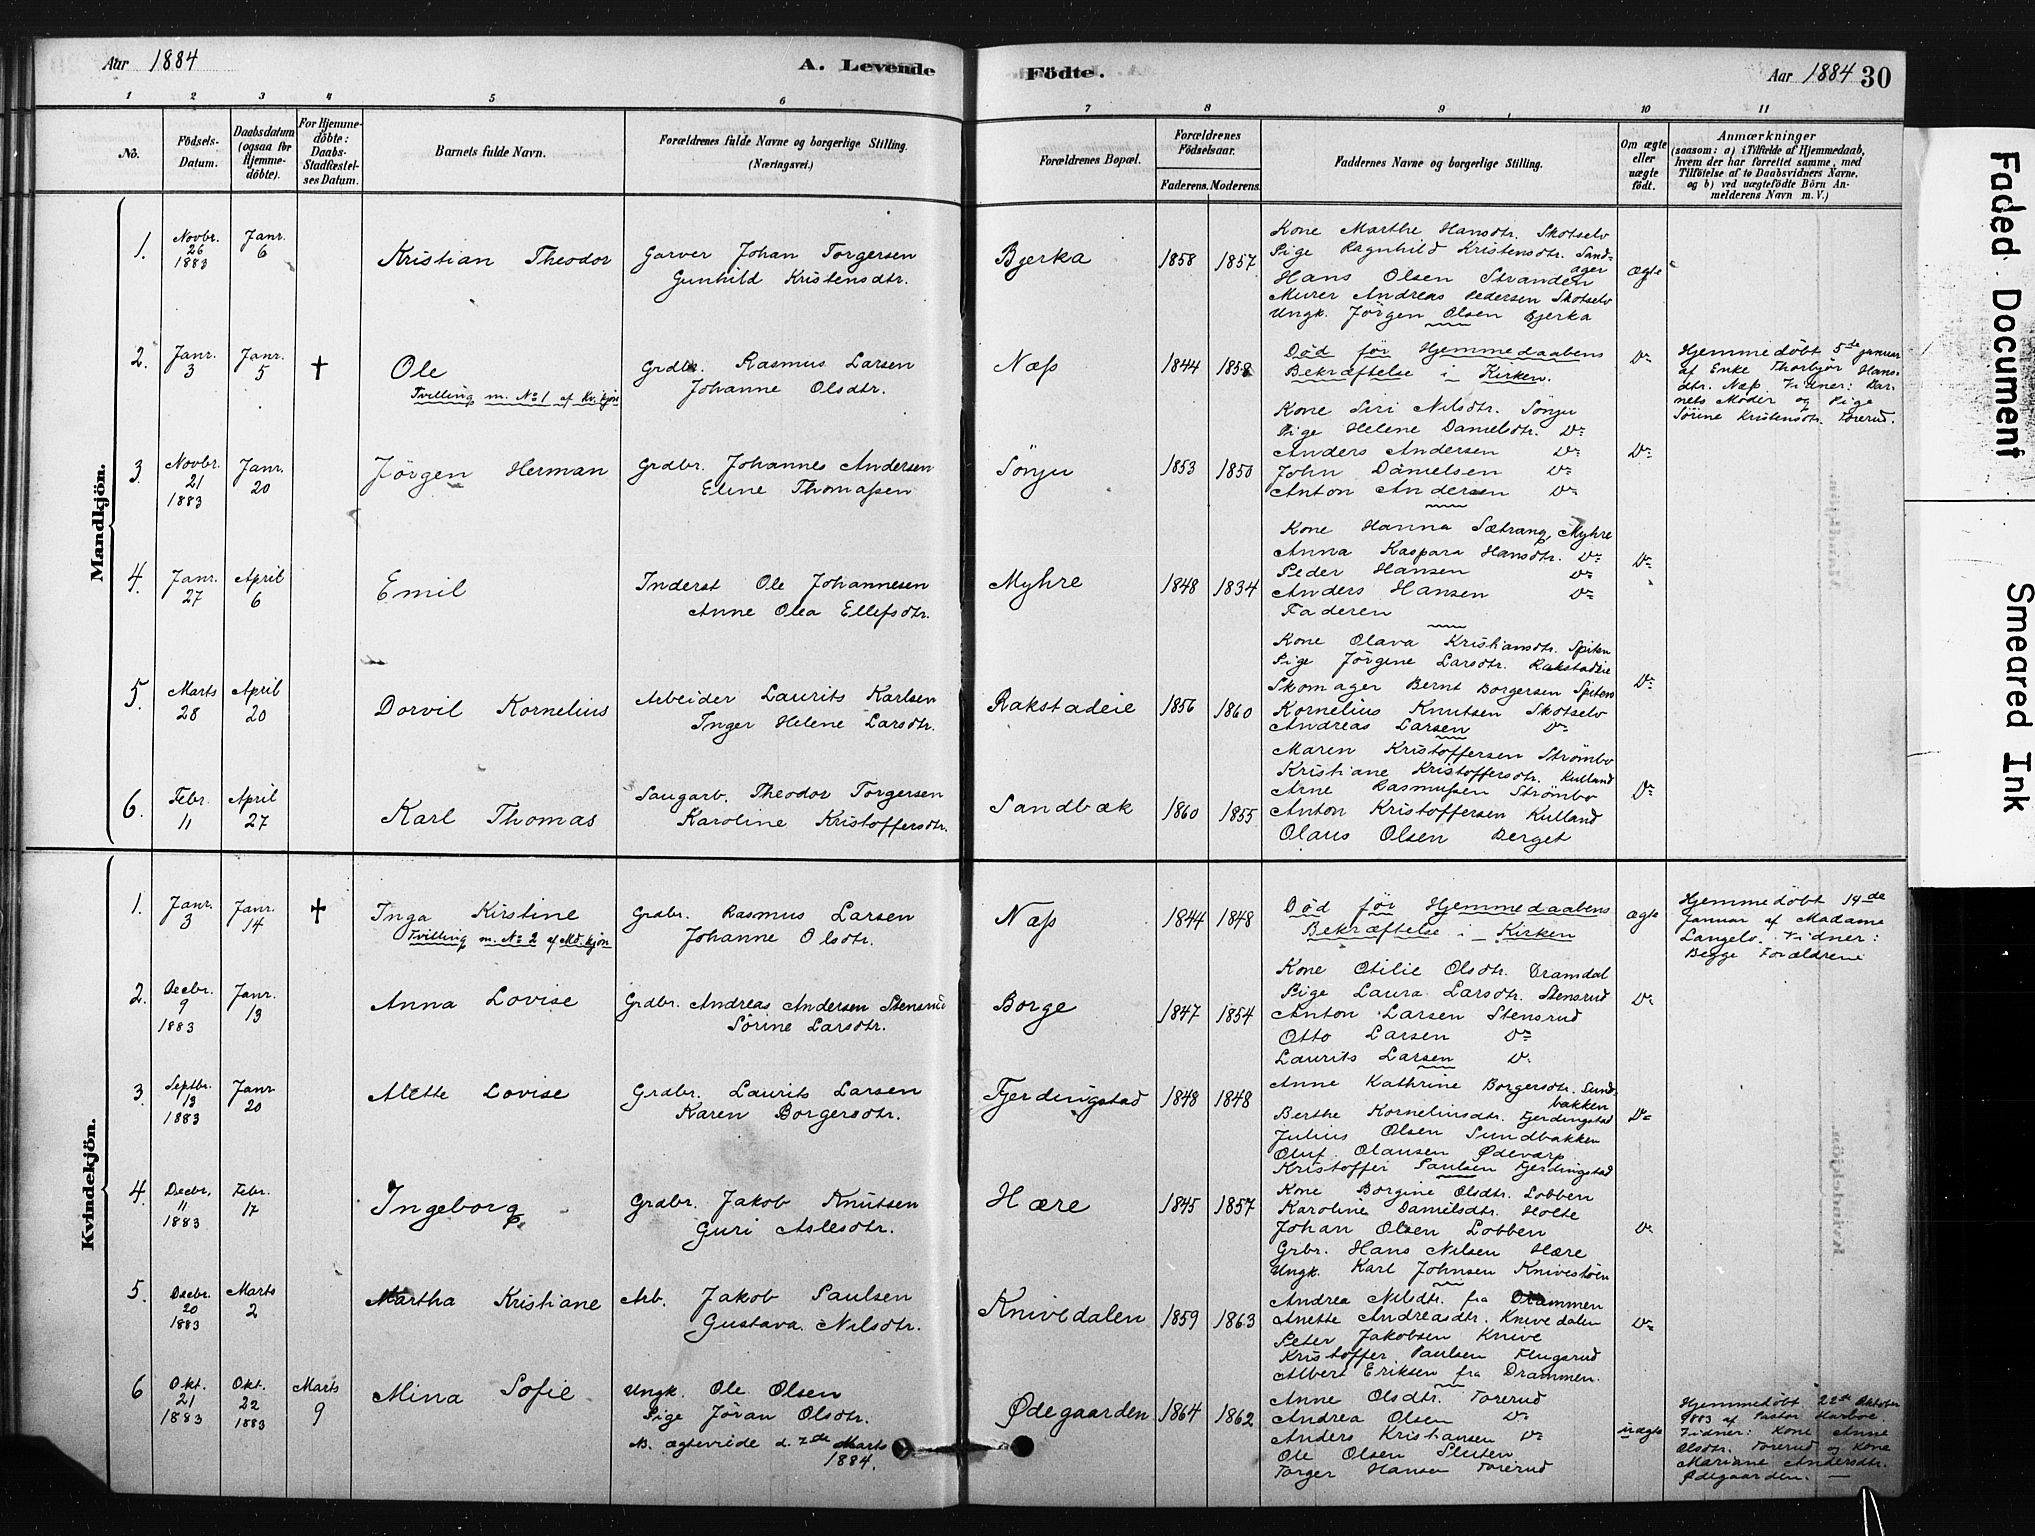 Aar 1884
A. Levende
Födte.
Aar 1884 30
1 2 3 4 5 6 7 8 9 10 11
No.
Födsels-
Datum.
Daabsdatum
(ogsaa for
Hjemme-
döbte).
For Hjemme-
döbte:
Daabs-
Stadfæstel-
ses Datum.
Barnets fulde Navn.
Forældrenes fulde Navne og borgerlige Stilling.
(Næringsvei.)
Forældrenes Bopæl.
Forældrenes
Födselsaar.
Faderens. Moderens.
Faddernes Navne og borgerlige Stilling.
Om ægte
eller
uægte
födt.
Anmærkninger
(saasom: a) i Tilfælde af Hjemmedaab,
hvem der har forrettet samme, med
Tilföielse af to Daabsvidners Navne,
og b) ved uægtefödte Börn An-
melderens Navn m. V.)
Mandkjön.
1. Novbr. 26 1883
Janr. 6
Kristian Theodor
Garver Johan Torgersen
Gunhild Kristensdtr.
Bjerka
1858 1857
Kone Marthe Hansdtr. Skotselv
Pige Ragnhild Kristensdtr. Sand-
ager
Hans Olsen Stranden
Murer Andreas Pedersen Skotselv
Ungk. Jörgen Olsen Bjerka
ægte
2. Janr. 3
Janr. 5
†
Ole
Tvilling m. No 1 af Kv. kjön
Grdbr. Rasmus Larsen
Johanne Olsdtr.
Næss
1844 1858
Død før Hjemmedaabens
Bekræftelse i Kirken.
Do
Hjemmedøbt 5te Januar
af Enke Thorbjør Hans-
dtr. Næss. Vidner: Bar-
nets Moder og Pige
Sörine Kristensdtr. Torerud.
3. Novbr. 21 1883
Janr. 20
Jørgen Herman
Grdbr. Johannes Andersen
Eline Thomassen
Sönju
1853 1850
Kone Siri Nilsdtr. Sönju
Pige Helene Danielsdtr. Do
Anders Andersen Do
John Danielsen Do
Anton Andersen Do
Do
4. Janr. 27
April 6
Emil
Inderst Ole Johannesen
Anne Olea Ellefsdtr.
Myhre
1848 1834
Kone Hanna Sætrang, Myhre
Anna Kaspara Hansdtr. Do
Peder Hansen Do
Anders Hansen Do
Faderen
Do
5. Marts 28
April 20
Dorvil Kornelius
Arbeider Laurits Karlsen
Inger Helene Larsdtr.
Rakstadeie
1856 1860
Kone Olava Kristiansdtr. Spiten
Pige Jörgine Larsdtr. Rakstadeie
Skomager Bernt Borgersen Spitens
Kornelius Knutsen Skotselv
Andreas Larsen Do
Do
6. Febr. 11
April 27
Karl Thomas
Saugarb. Theodor Torgersen
Karoline Kristoffersdtr.
Sandbæk
1860 1855
Maren Kristoffersen Strömbo
Kristiane Kristoffersdtr. Kulland
Arne Rasmussen Strömbo
Anton Kristoffersen Kulland
Olaus Olsen Berget
Do
Kvindekjön.
1. Janr. 3
Janr. 14
†
Inga Kirstine
Tvilling m. No 2 af Md. kjön
Grdbr. Rasmus Larsen
Johanne Olsdtr.
Næss
1844 1848
Død før Hjemmedaabens
Bekræftelse i Kirken
ægte
Hjemmedøbt 14de
Januar af Madame
Langelv. Vidner:
Begge Forældrene
2. Decbr. 9 1883
Janr. 13
Anna Lovise
Grdbr. Andreas Andersen Stensrud
Sörine Larsdtr.
Borge
1847 1854
Kone Otilie Olsdtr. Dramdal
Pige Laura Larsdtr. Stensrud
Anton Larsen Stensrud
Otto Larsen Do
Laurits Larsen Do
Do
3. Septbr. 13 1883
Janr. 20
Alette Lovise
Grdbr. Laurits Larsen
Karen Borgersdtr.
Fjerdingstad
1848 1848
Anne Kathrine Borgersdtr. Sund-
bakken
Berthe Korneliusdtr. Fjerdingstad
Julius Olsen Sundbakken
Oluf Olausen Ødevarp
Kristoffer Paulsen Fjerdingstad
Do
4. Decbr. 11 1883
Febr. 17
Ingeborg
Grdbr. Jakob Knutsen
Guri Aslesdtr.
Hære
1845 1857
Kone Borgine Olsdtr. Lobben
Karoline Danielsdtr. Holte
Johan Olsen Lobben
Grbr. Hans Nilsen Hære
Ungk. Karl Johnsen Knivestöen
Do
5. Decbr. 20 1883
Marts 2
Martha Kristiane
Arb. Jakob Paulsen
Gustava Nilsdtr.
Knivedalen
1859 1863
Andrea Nilsdtr. fra Drammen
Anette Andreasdtr. Knivedalen
Peter Jakobsen Knive
Kristoffer Paulsen Flugsrud
Albert Eriksen fra Drammen.
Do
6 Okt. 21 1883
Okt. 22 1883
Marts 9
Mina Sofie
Ungk. Ole Olsen
Pige Jöran Olsdtr.
N. ægteviede d. 7de Marts
1884.
Ødegaarden
1864 1862
Anne Olsdtr. Torerud
Andrea Olsen Do
Anders Kristiansen Do
Ole Olsen Sluten
Torger Hansen Torerud
uægte
Hjemmedøbt 22de Oktober
1883 af Pastor Harboe.
Vidner: Kone Anne
Olsdtr. Torerud og Kone
Mariane Andersdtr.
Ødegaarden.
Faded Document
Smeared Ink